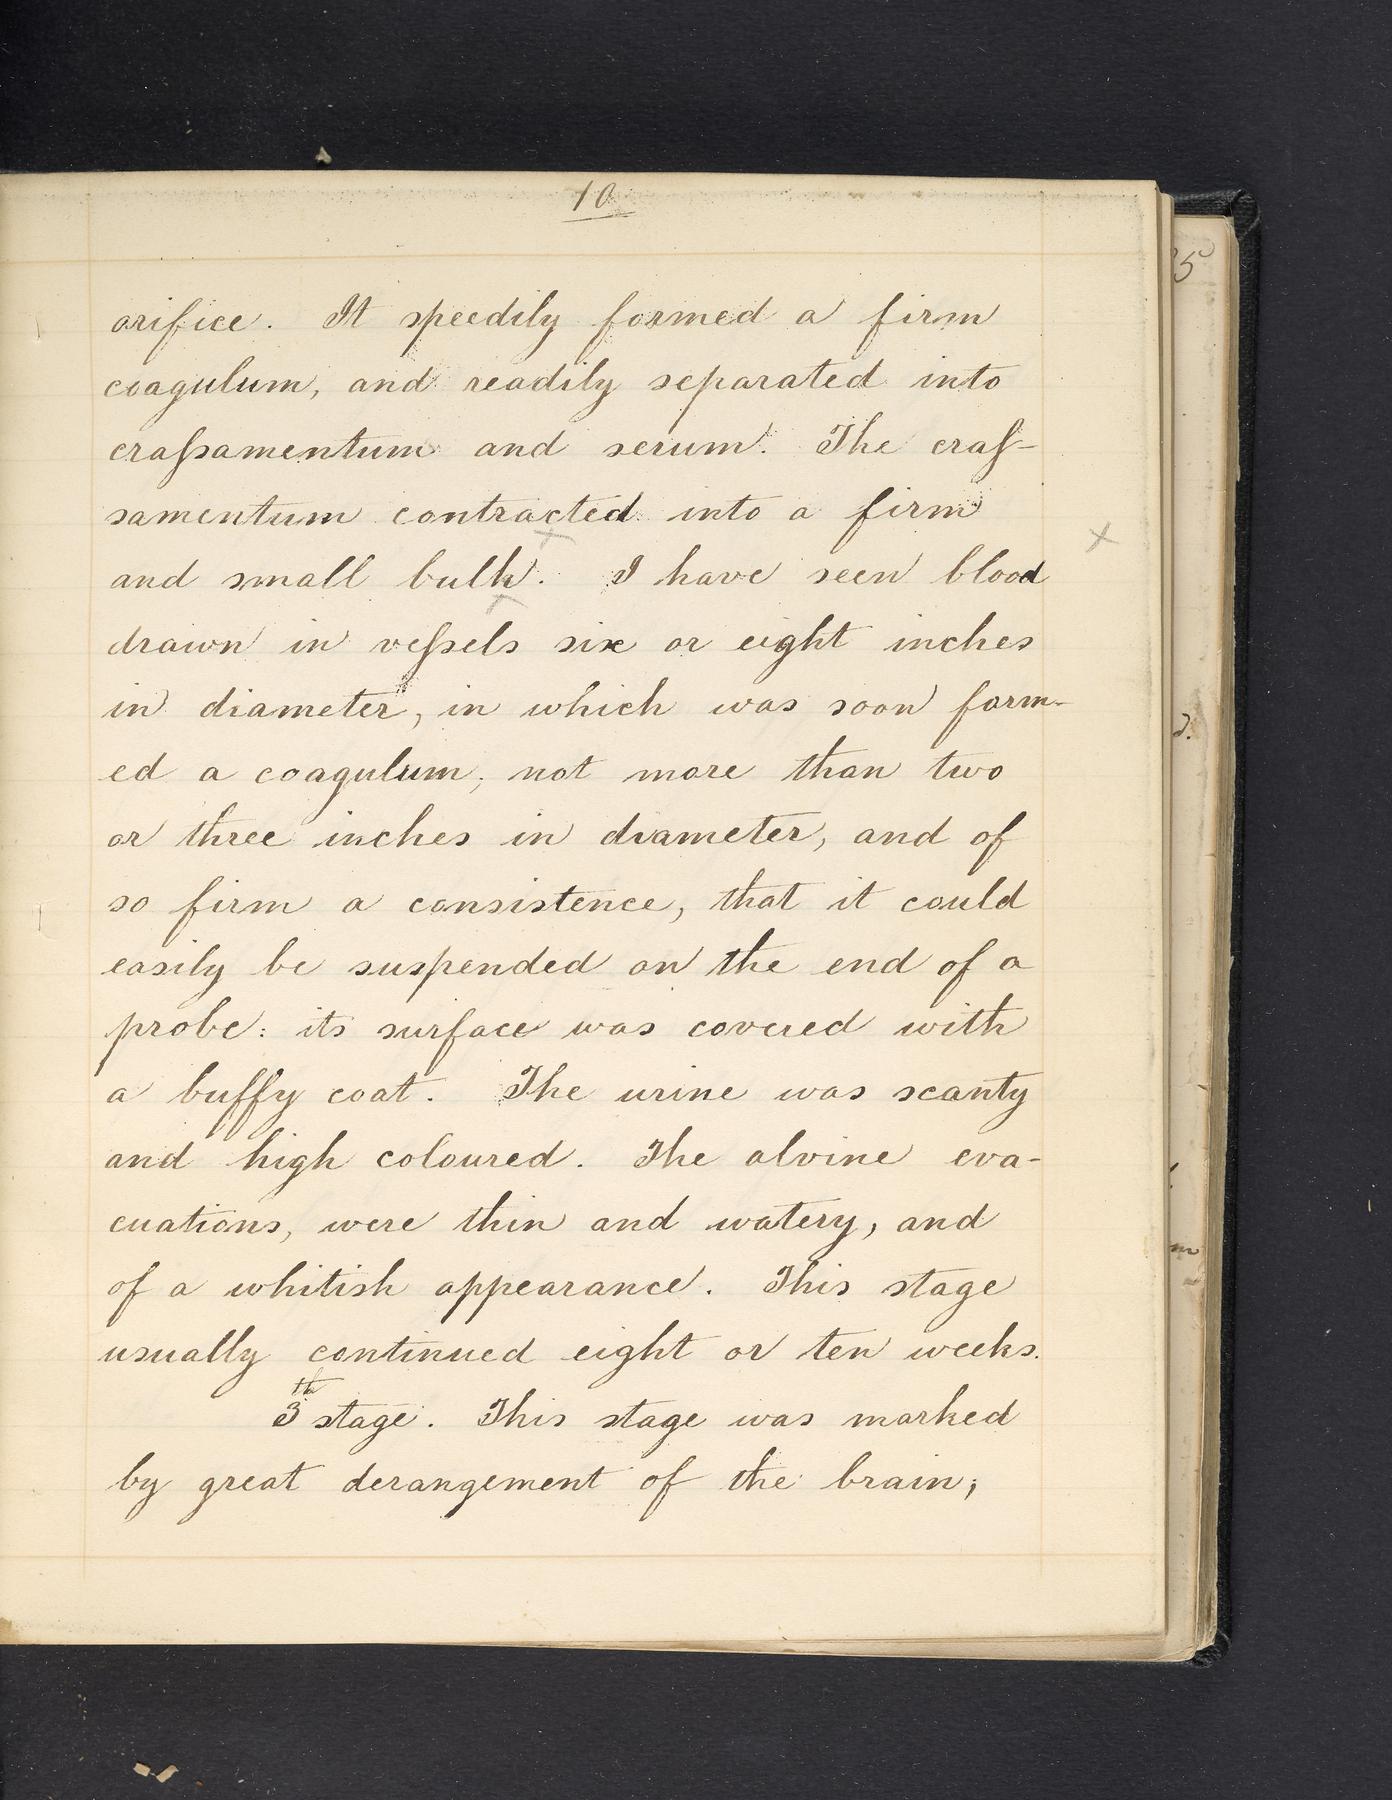 10
35
orifice. It speedily formed a firm
coagulum, and readily separated into
craſsamentum and serum. The craſ-
samentum contracted into a firm
x
and small bulk. I have seen blood
drawn in veſsels six or eight inches
in diameter, in which was soon form-
d.
ed a coagulum, not more than two
or three inches in diameter, and of
so firm a consistence, that it could
easily be suspended on the end of a
probe: its surface was covered with
a buffy coat. The urine was scanty
and high coloured. The alvine eva-
cuations, were thin and watery, and
of a whitish appearance. This stage
usually continued eight or ten weeks.
3th stage. This stage was marked
by great derangement of the brain;